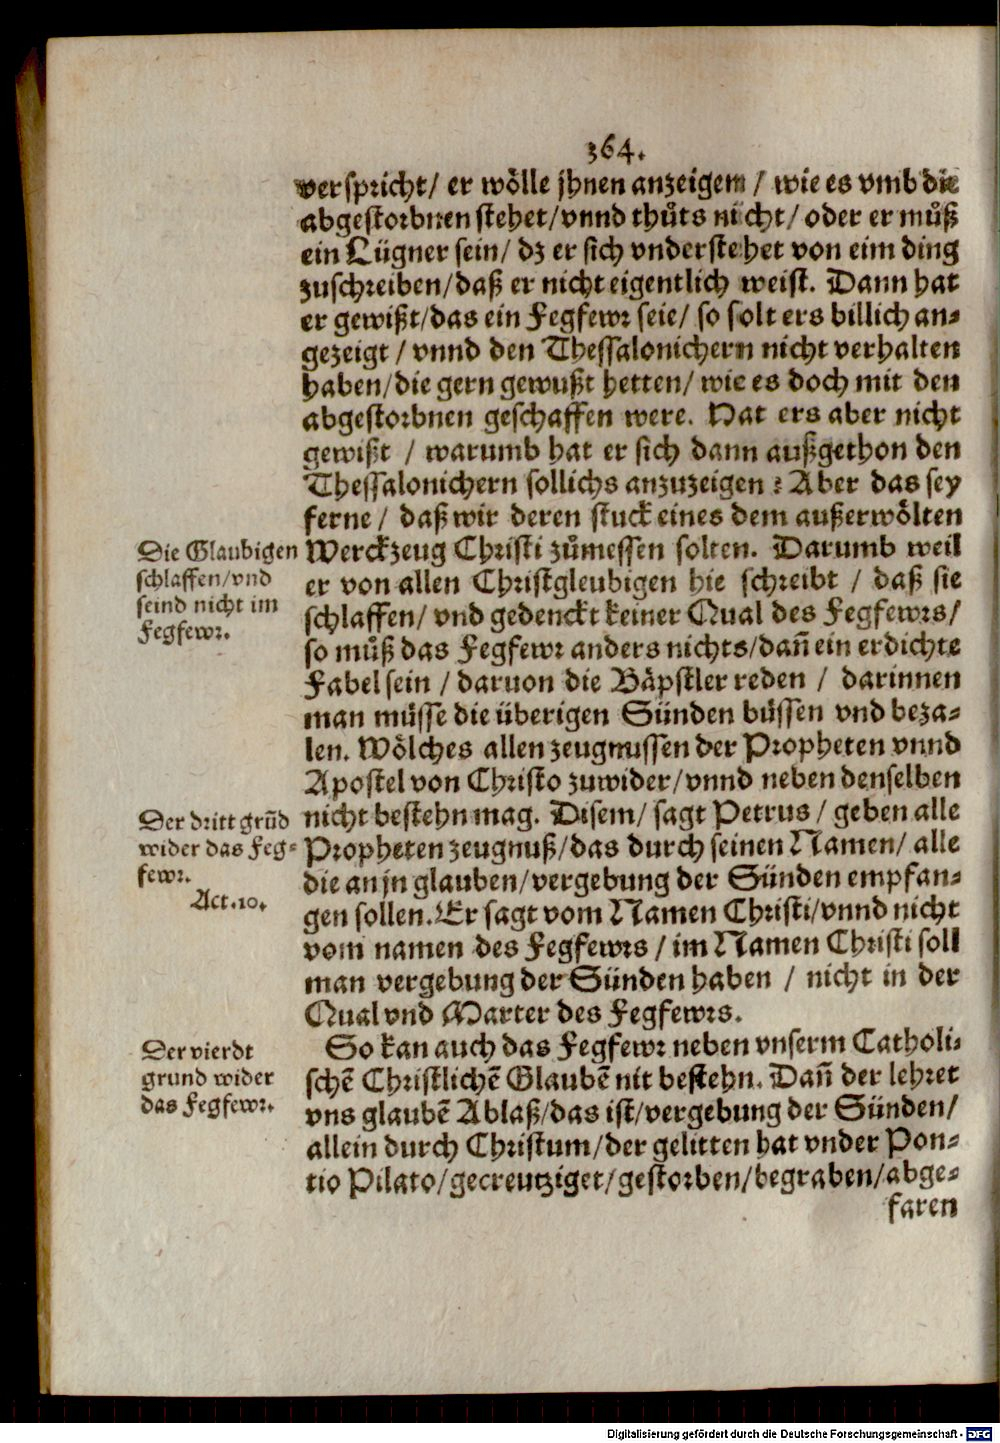 364.
verspricht/ er wölle jhnen anzeigem / wie es vmb die
abgestorbnen stehet/vnnd thůts nicht/ oder er můß
ein Lügner sein/ dz er sich vnderstehet von eim ding
zuschreiben/daß er nicht eigentlich weist. Dann hat
er gewißt/das ein Fegfewr seie/ so solt ers billich an-
gezeigt / vnnd den Thessalonichern nicht verhalten
haben/die gern gewußt hetten/ wie es doch mit den
abgestorbnen geschaffen were. Hat ers aber nicht
gewißt / warumb hat er sich dann außgethon den
Thessalonichern sollichs anzuzeigen? Aber das sey
ferne/ daß wir deren stuck eines dem außerwölten
Werckzeug Christi zůmessen solten. Darumb weil
er von allen Christgleubigen hie schreibt / daß sie
schlaffen/ vnd gedenckt keiner Qual des Fegfewrs/
so můß das Fegfewr anders nichts/dañ ein erdichte
Fabel sein / daruon die Bäpstler reden / darinnen
man müsse die überigen Sünden büssen vnd beza-
len. Wölches allen zeugnussen der Propheten vnnd
Apostel von Christo zuwider/vnnd neben denselben
nicht bestehn mag. Disem/ sagt Petrus / geben alle
Propheten zeugnuß/das durch seinen Namen/ alle
die an jn glauben/vergebung der Sünden empfan-
gen sollen. Er sagt vom Namen Christi/vnnd nicht
vom namen des Fegfewrs / im Namen Christi soll
man vergebung der Sünden haben / nicht in der
Qual vnd Marter des Fegfewrs.
So kan auch das Fegfewr neben vnserm Catholi-
schẽ Christlichẽ Glaubẽ nit bestehn. Dañ der lehret
vns glaubẽ Ablaß/das ist/vergebung der Sünden/
allein durch Christum/der gelitten hat vnder Pon-
tio Pilato/gecreutziget/gestorben/begraben/abge-
faren
Die Glaubigen
schlaffen/vnd
seind nicht im
Fegfewr.
Der dritt grũd
wider das Feg-
fewr.
Act.10.
Der vierdt
grund wider
das Fegfewr.
Digitalisierung gefördert durch die Deutsche Forschungsgemeinschaft - DFG